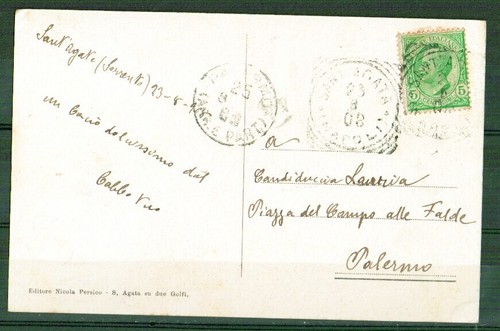 Sant'Agata (Sorrento) 23-8-08
un bacio dolcissimo dal
Babbo Vro
PALERMO
25
8
08
ARR. E PART.
SANT'AGATA
23
8
08
NAPOLI
5 5
a
Candiduccia Lauria
Piazza del Campo alle Falde
Palermo
Editore Nicola Persico - S. Agata su due Golfi.